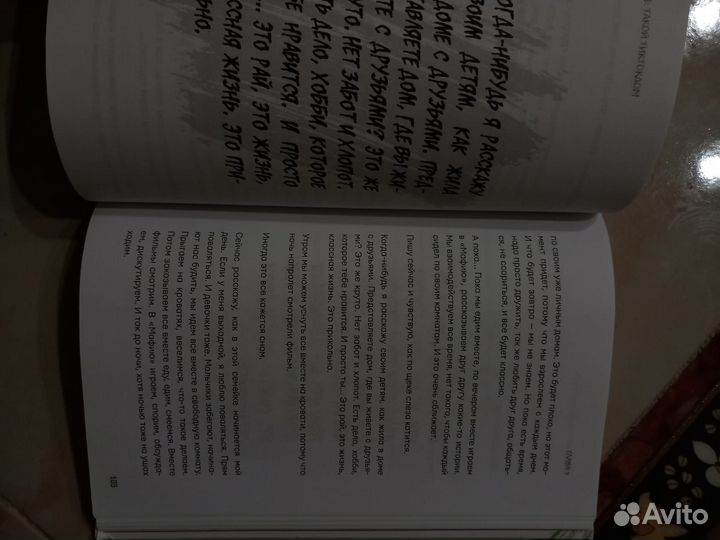 В ТАКОЙ ТИКТОКДОМ
КОГДА-НИБУДЬ Я РАССКАЖУ
СВОИМ ДЕТЯМ, КАК ЖИЛА
В ДОМЕ С ДРУЗЬЯМИ. ПРЕД-
СТАВЛЯЕТЕ ДОМ, ГДЕ ВЫ ЖИ-
ВЕТЕ С ДРУЗЬЯМИ? ЭТО ЖЕ
КРУТО. НЕТ ЗАБОТ И ХЛОПОТ.
ЕСТЬ ДЕЛО, ХОББИ, КОТОРОЕ
ТЕБЕ НРАВИТСЯ. И ПРОСТО
ТЫ... ЭТО РАЙ, ЭТО ЖИЗНЬ,
КЛАССНАЯ ЖИЗНЬ. ЭТО ПРИ-
КОЛЬНО.
по своим уже личным домам. Это будет плохо, но этот мо-
мент придет, потому что мы взрослеем с каждым днем.
И что будет завтра — мы не знаем. Но пока есть время,
надо просто дружить, так же любить друг друга, общать-
ся, не ссориться, и все будет классно.
А пока... Пока мы едим вместе, по вечерам вместе играем
в «Мафию», рассказываем друг другу какие-то истории.
Мы взаимодействуем все время, нет такого, чтобы каждый
сидел по своим комнатам. И это очень сближает.
Пишу сейчас и чувствую, как по щеке слеза катится.
Когда-нибудь я расскажу своим детям, как жила в доме
с друзьями. Представляете дом, где вы живете с друзья-
ми? Это же круто. Нет забот и хлопот. Есть дело, хобби,
которое тебе нравится. И просто ты... Это рай, это жизнь,
классная жизнь. Это прикольно.
Утром мы можем уснуть все вместе на кровати, потому что
ночь напролет смотрели фильм.
Иногда это все кажется сном.
Сейчас расскажу, как в этой семейке начинается мой
день. Если у меня выходной, я люблю поваляться. Прям
поваляться. И девочки тоже. Мальчики забегают, начина-
ют нас будить, мы идем все вместе в свободную комнату.
Прыгаем на кроватях, веселимся, что-то такое делаем.
Потом заказываем все вместе еду, едим, смеемся. Вместе
фильмы смотрим. В «Мафию» играем, спорим, обсужда-
ем, дискутируем. И так до ночи, хотя ночью тоже на ушах
ходим.
103
Avito